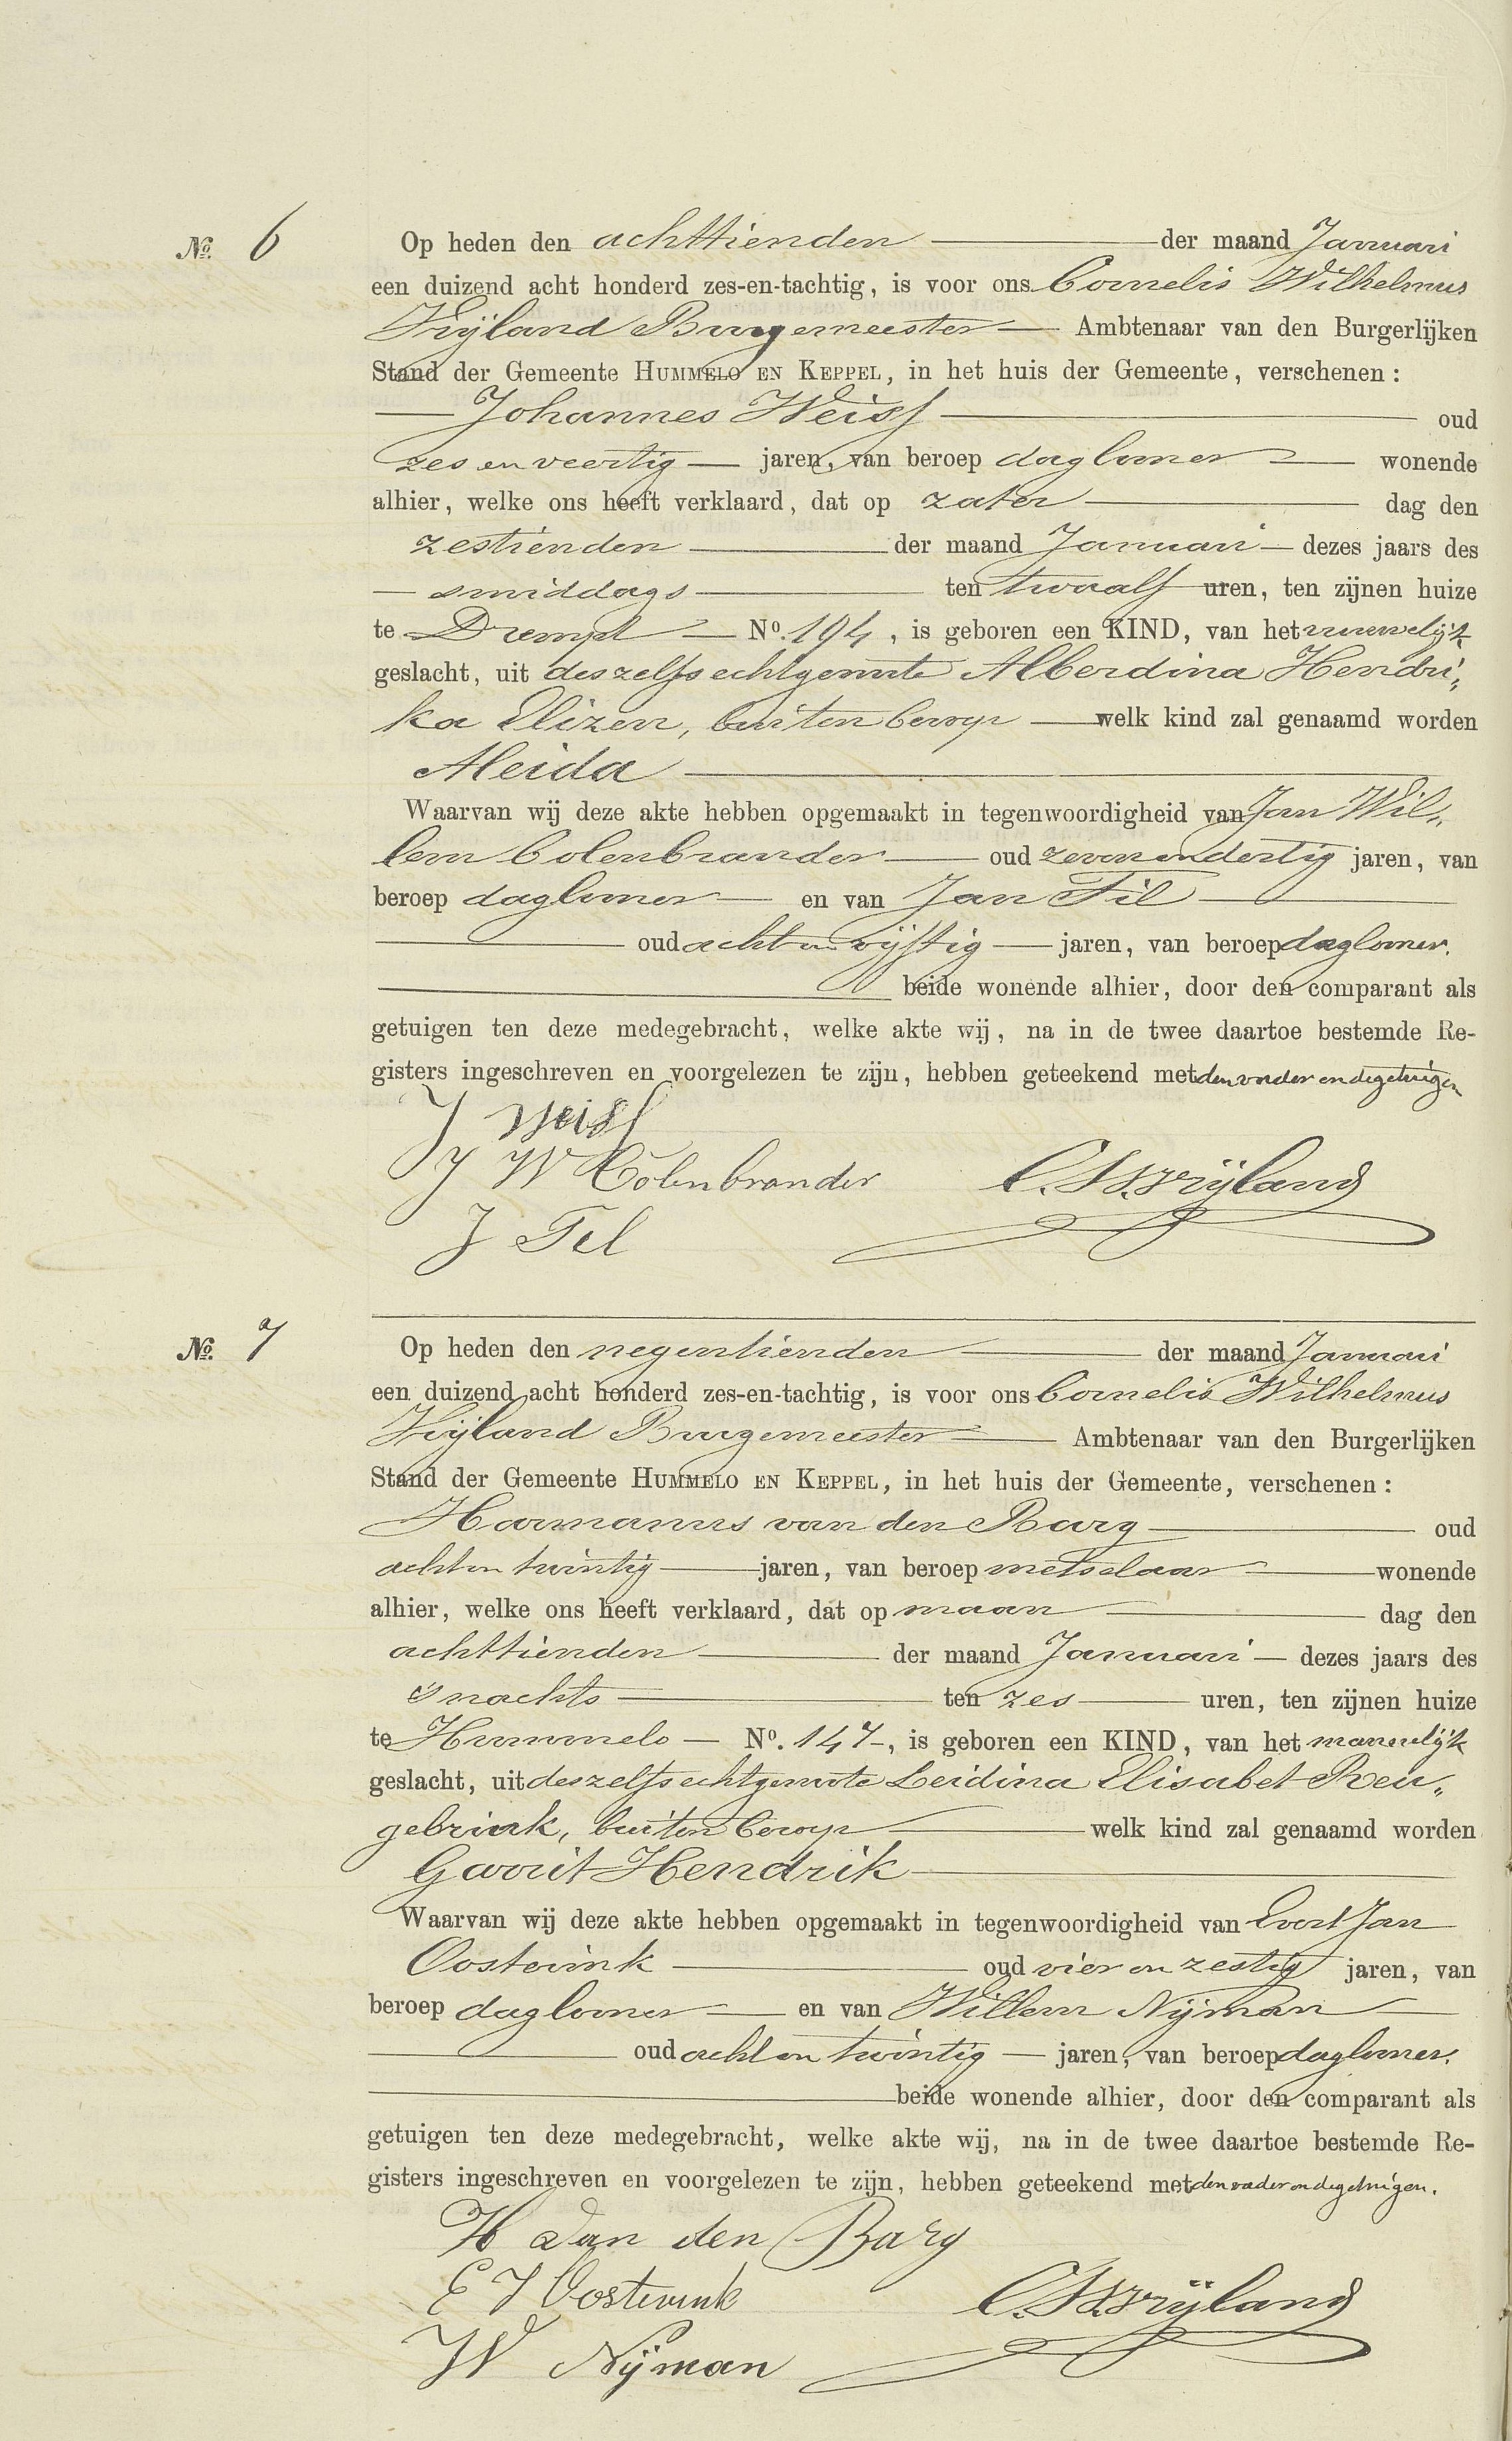 No. 6
Op heden den achttienden der maand Januari
een duizend acht honderd zes-en-tachtig, is voor ons Cornelis Wilhelmus
Vrijland Burgemeester Ambtenaar van den Burgerlijken
Stand der Gemeente HUMMELO EN KEPPEL, in het huis der Gemeente, verschenen:
Johannes Weiss oud
zes en veertig jaren, van beroep daglooner wonende
alhier, welke ons heeft verklaard, dat op zater dag den
zestienden der maand Januari dezes jaars des
smiddags ten twaalf uren, ten zijnen huize
te Drempt No. 194, is geboren een KIND, van het vrouwelijk
geslacht, uit deszelfs echtgenoote Alberdina Hendri„
ka Elizen, buiten beroep welk kind zal genaamd worden
Aleida
Waarvan wij deze akte hebben opgemaakt in tegenwoordigheid van Jan Wil„
lem Colenbrander oud zeven en dertig jaren, van
beroep daglooner en van Jan Til
oud acht en vijftig jaren, van beroep daglooner.
beide wonende alhier, door den comparant als
getuigen ten deze medegebracht, welke akte wij, na in de twee daartoe bestemde Re-
gisters ingeschreven en voorgelezen te zijn, hebben geteekend met den vader en de getuigen
J Weiss
J W Colenbrander C.W.Vrijland
J Tel
No. 7
Op heden den negentienden der maand Januari
een duizend acht honderd zes-en-tachtig, is voor ons Cornelis Wilhelmus
Vrijland Burgemeester Ambtenaar van den Burgerlijken
Stand der Gemeente HUMMELO EN KEPPEL, in het huis der Gemeente, verschenen:
Harmanus van den Barg oud
acht en twintig jaren, van beroep metselaar wonende
alhier, welke ons heeft verklaard, dat op maan dag den
achttienden der maand Januari dezes jaars des
's nachts ten zes uren, ten zijnen huize
te Hummelo No. 147, is geboren een KIND, van het mannelijk
geslacht, uit deszelfs echtgenoote Leidina Elisabet Reu„
gebrink, buiten beroep welk kind zal genaamd worden
Garrit Hendrik
Waarvan wij deze akte hebben opgemaakt in tegenwoordigheid van Evert Jan
Oosterink oud vier en zestig jaren, van
beroep daglooner en van Willem Nijman
oud acht en twintig jaren, van beroep daglooner.
beide wonende alhier, door den comparant als
getuigen ten deze medegebracht, welke akte wij, na in de twee daartoe bestemde Re-
gisters ingeschreven en voorgelezen te zijn, hebben geteekend met den vader en de getuigen.
H van den Barg
E J Oosterink C.W.Vrijland
W Nijman